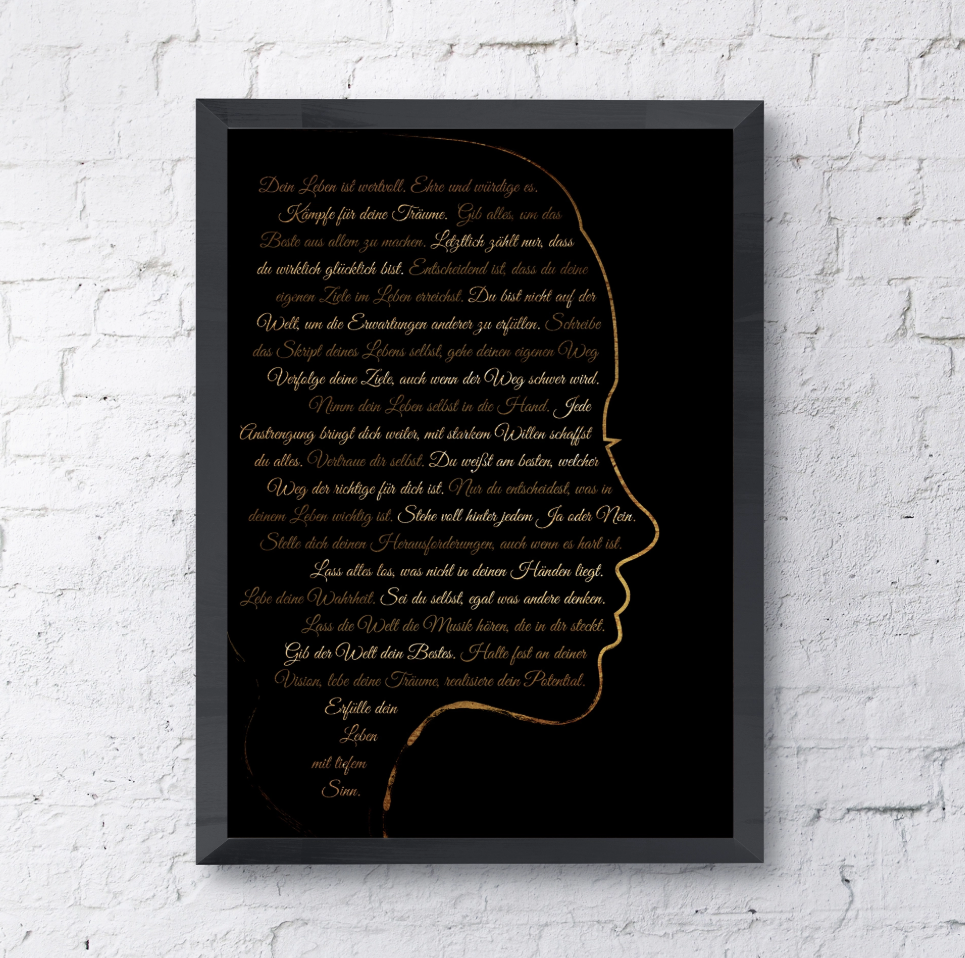 Dein Leben ist wertvoll. Ehre und würdige es.
Kämpfe für deine Träume. Gib alles, um das
Beste aus allem zu machen. Letztlich zählt nur, dass
du wirklich glücklich bist. Entscheidend ist, dass du deine
eigenen Ziele im Leben erreichst. Du bist nicht auf der
Welt, um die Erwartungen anderer zu erfüllen. Schreibe
das Skript deines Lebens selbst, gehe deinen eigenen Weg
Verfolge deine Ziele, auch wenn der Weg schwer wird.
Nimm dein Leben selbst in die Hand. Jede
Anstrengung bringt dich weiter, mit starkem Willen schaffst
du alles. Vertraue dir selbst. Du weißt am besten, welcher
Weg der richtige für dich ist. Nur du entscheidest, was in
deinem Leben wichtig ist. Stehe voll hinter jedem Ja oder Nein.
Stelle dich deinen Herausforderungen, auch wenn es hart ist.
Lass alles los, was nicht in deinen Händen liegt.
Lebe deine Wahrheit. Sei du selbst, egal was andere denken.
Lass die Welt die Musik hören, die in dir steckt.
Gib der Welt dein Bestes. Halte fest an deiner
Vision, lebe deine Träume, realisiere dein Potential.
Erfülle dein
Leben
mit tiefem
Sinn.